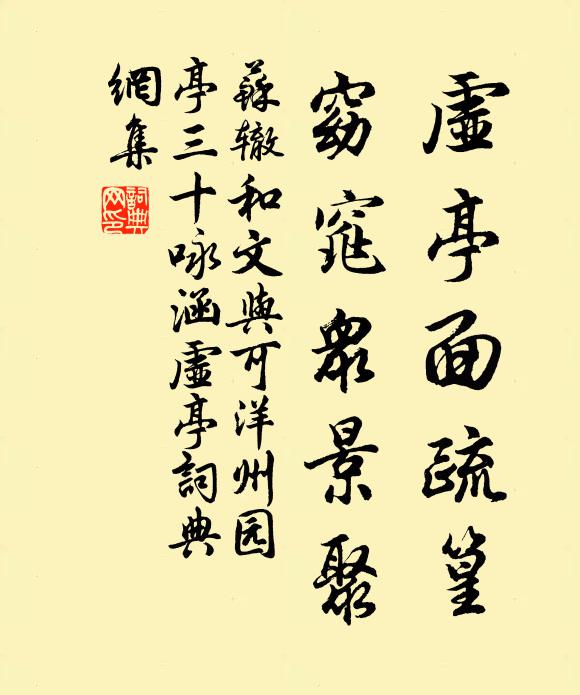 虛亭面疏篁
窈窕衆景聚
蘇辙和文與可洋州园
亭三十咏涵虛亭詞典
網集
詞典
网印